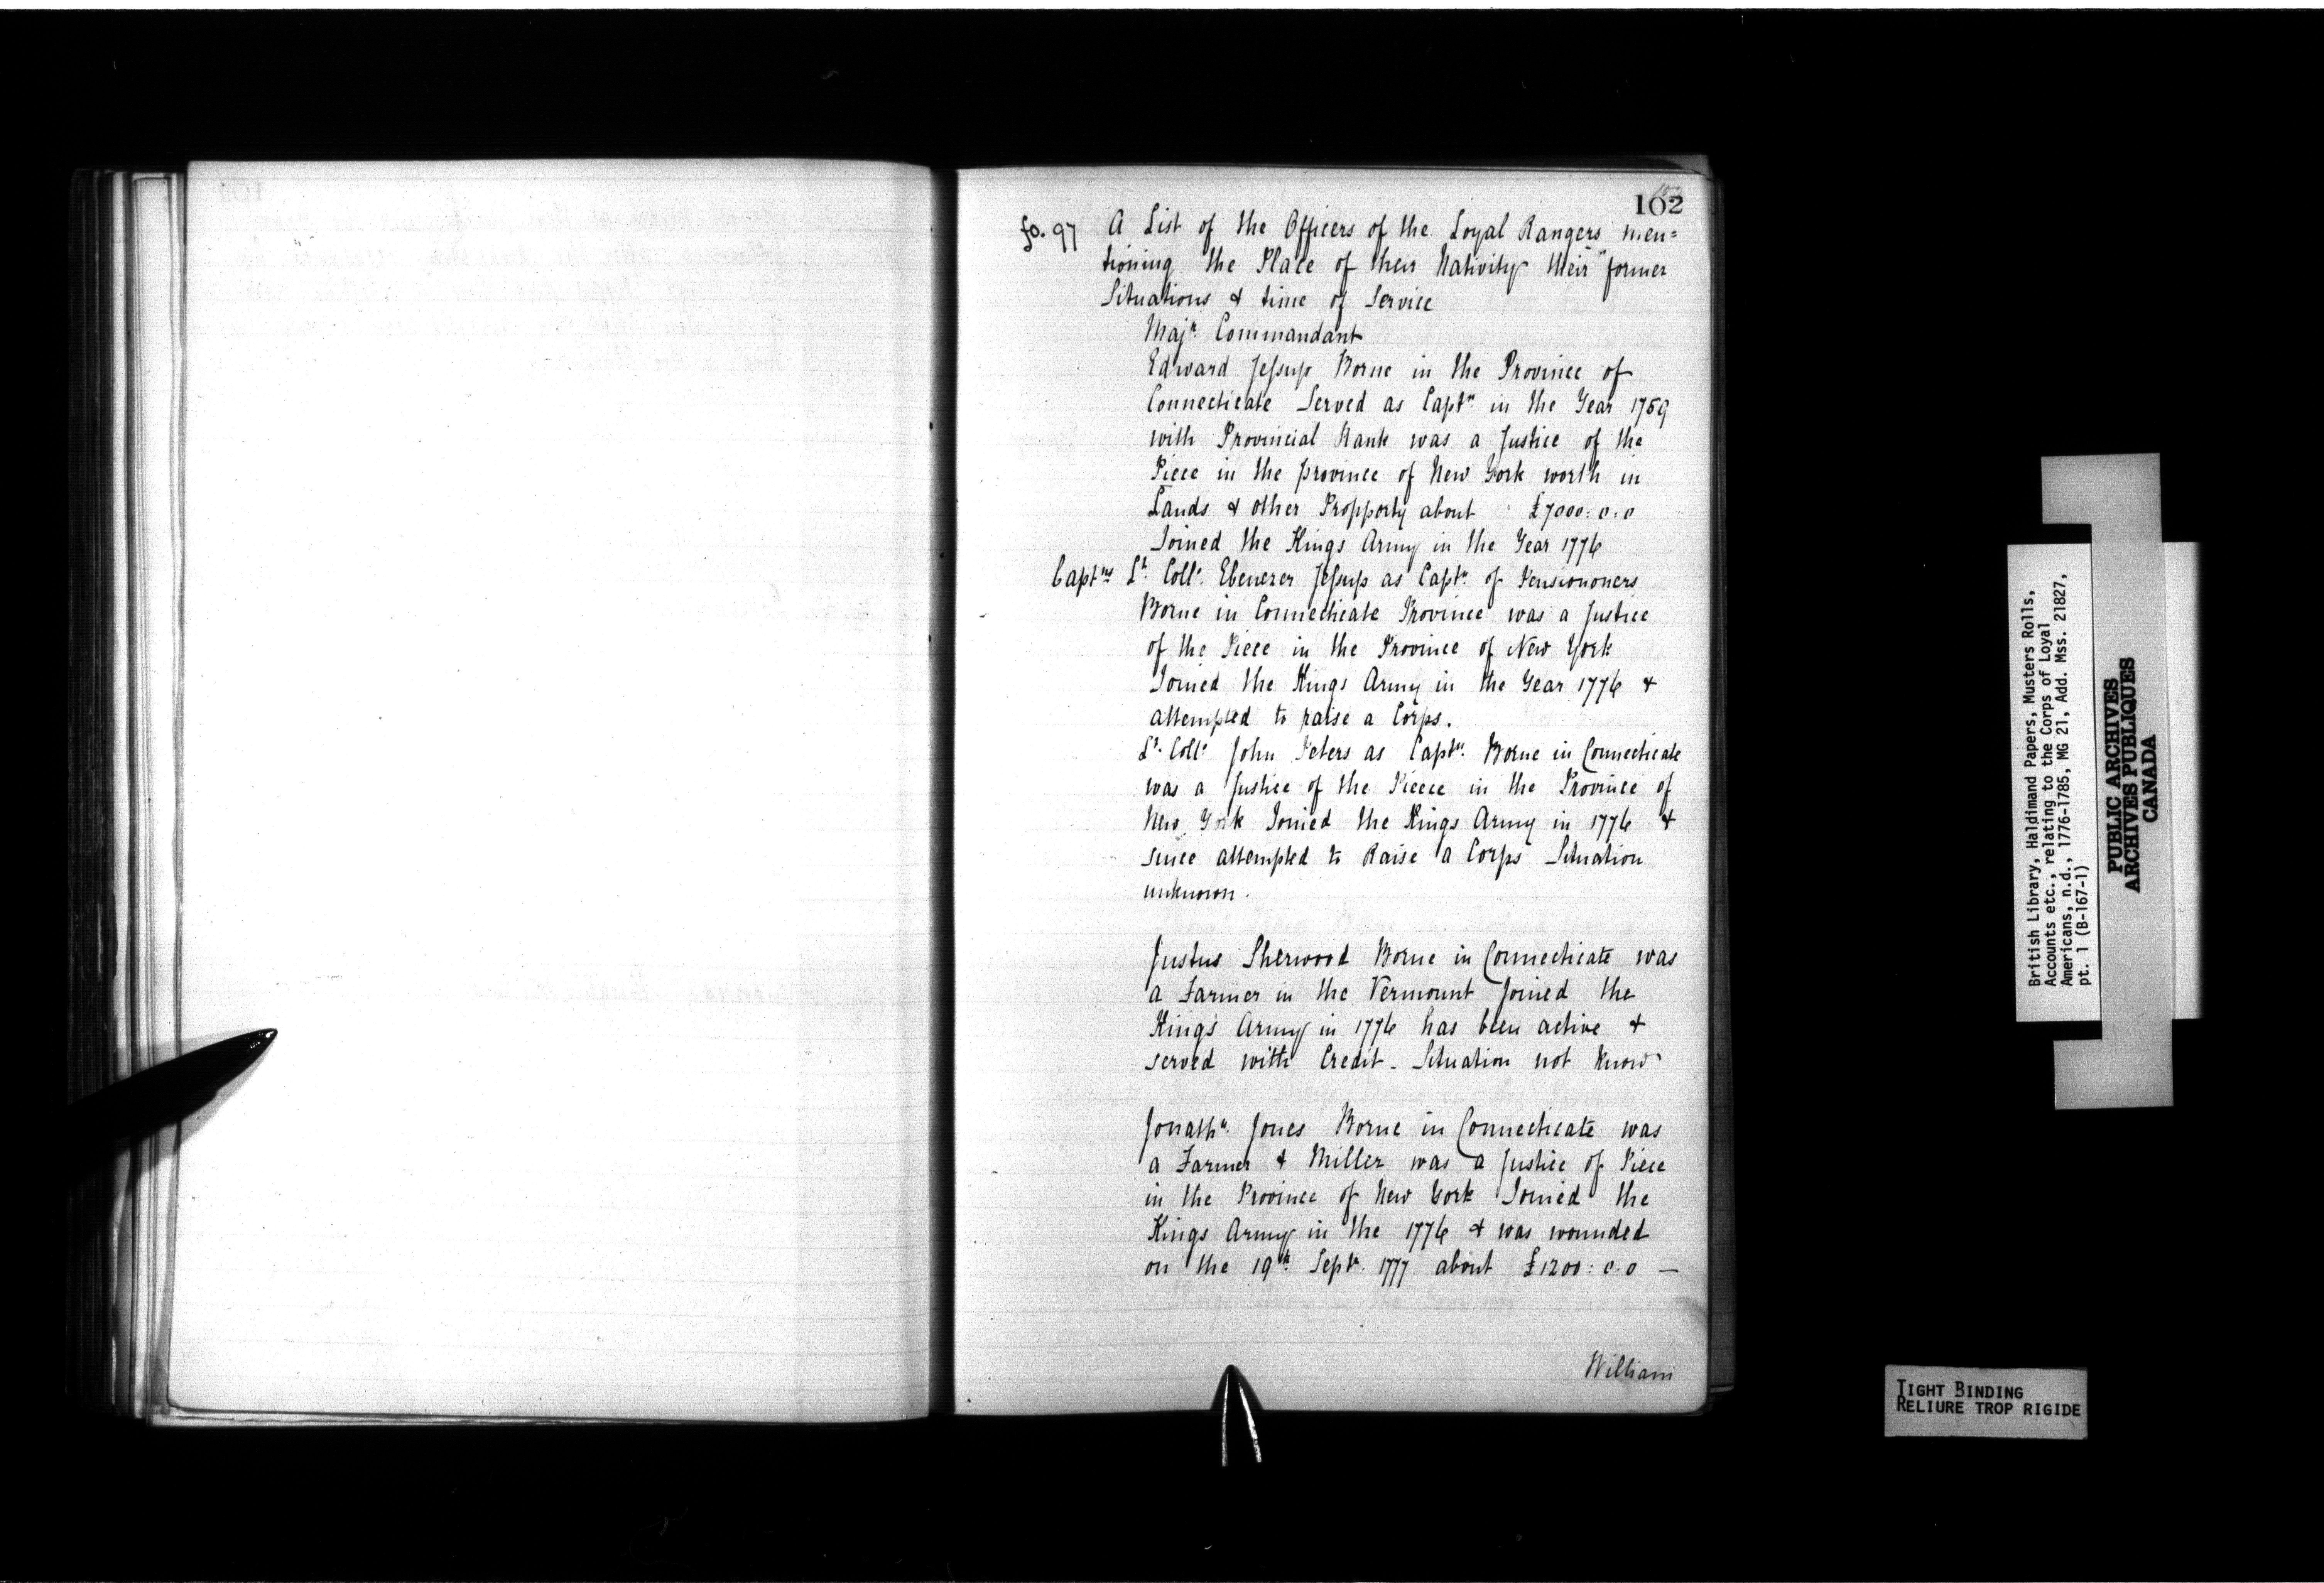 102
fo. 97 A List of the Officers of the Loyal Rangers men=
tioning the Place of their Nativity their former
Situations & time of Service
Majr. Commandant
Edward Jessup Borne in the Province of
Connecticate Served as Captn. in the Year 1759
with Provincial Rank was a Justice of the
Piece in the province of New York worth in
Lands & other Propperty about £7000:0.0
Joined the Kings Army in the Year 1776
Captns Lt. Coll. Ebenezer Jessup as Captn. of Pensiononers
Borne in Connecticate Province was a Justice
of the Piece in the Province of New York
Joined the Kings Army in the Year 1776 &
attempted to raise a Corps.
Lt. Coll. John Peters as Captn. Borne in Connecticate
was a Justice of the Pieece in the Province of
New York Joined the Kings Army in 1776 &
since attempted to Raise a Corps Situation
unknown.
Justus Sherwood Borne in Connecticate was
a Farmer in the Vermount Joined the
King's Army in 1776 has been active &
served with Credit - Situation not know
Jonathn. Jones Borne in Connecticate was
a Farmer & Miller was a Justice of Piece
in the Province of New York Joined the
Kings Army in the 1776 & was wounded
on the 19th. Septr. 1777 about £1200:0.0 —
William
British Library, Haldimand Papers, Musters Rolls,
Accounts etc., relating to the Corps of Loyal
Americans, n.d., 1776-1785, MG 21, Add. Mss. 21827,
pt. 1 (B-167-1)
PUBLIC ARCHIVES
ARCHIVES PUBLIQUES
CANADA
TIGHT BINDING
RELIURE TROP RIGIDE